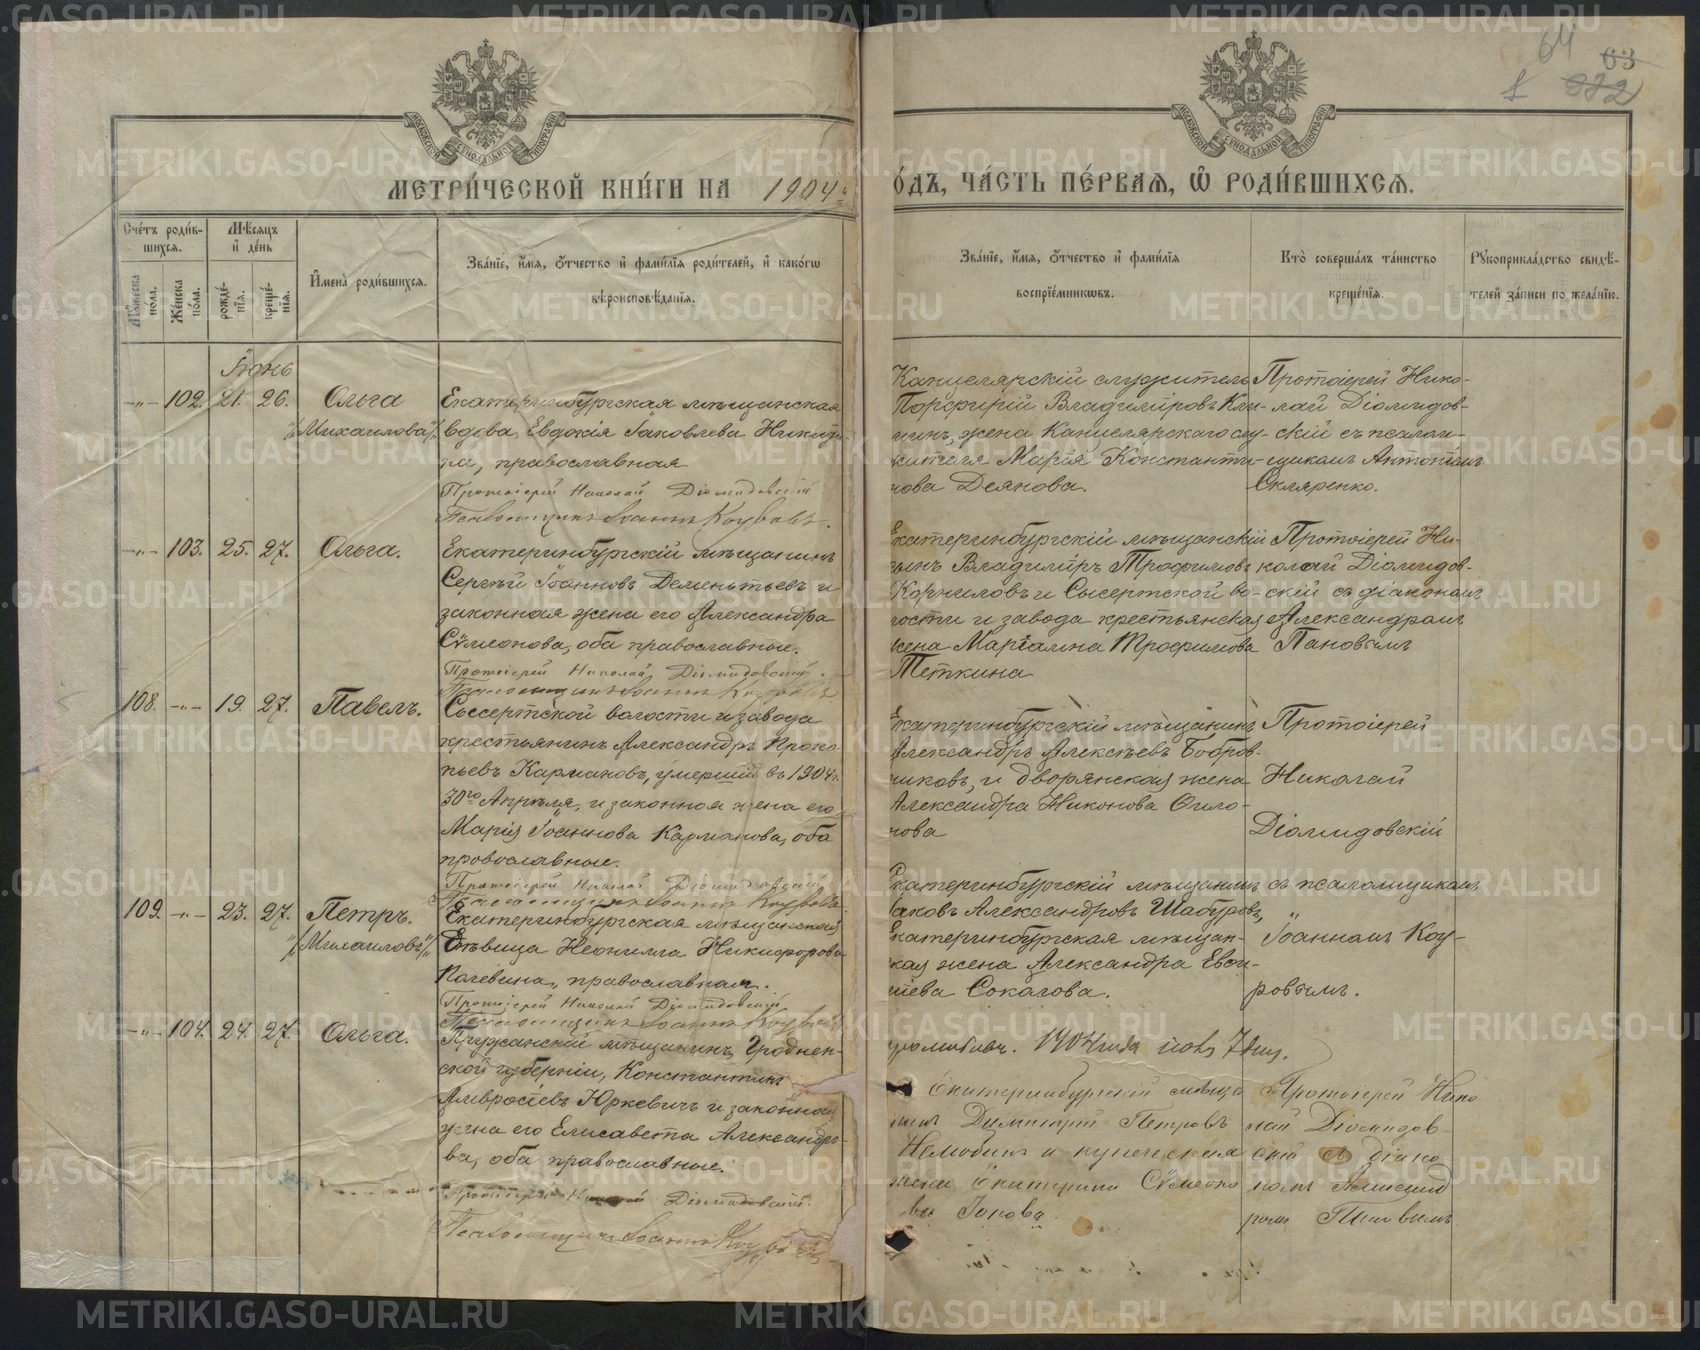 64
63
1 332
МОСКОВСКОЙ СѴНОДАЛЬНОЙ ТИПОГРАФІИ
МОСКОВСКОЙ СѴНОДАЛЬНОЙ ТИПОГРАФІИ
МЕТРИ́ЧЕСКОЙ КНИ́ГИ НА 1904
О́ДЪ, ЧА́СТЬ ПЕ́РВАѦ, Ѡ РОДИ́ВШИХСѦ.
Сче́тъ роди́в-
шихсѧ.
Мꙋ́жеска по́ла.
Же́нска по́ла.
Мѣ́сѧцъ
и҆ де́нь
рожде́-
нїѧ.
креще́-
нїѧ.
И҆мена̀ роди́вшихсѧ.
Зва́нїе, и҆́мѧ, ѻ҆́тчество и҆ фами́лїѧ роди́телей, и҆ како́гѡ
вѣроисповѣ́данїѧ.
Зва́нїе, и҆́мѧ, ѻ҆́тчество и҆ фами́лїѧ
воспрїе́мникѡвъ.
Кто̀ соверша́лъ та́инство
креще́нїѧ.
Рꙋкоприкла́дство свидѣ́-
телей за́писи по жела́нїю.
Іюнь
-"- 102. 21. 26. Ольга
/"Михаилова"/
Екатеринбургская мѣщанская
вдова, Евдокія Іаковлева Никити-
на, православная
Протоіерей Николай Діомидовскій
Псаломщикъ Іоаннъ Коуровъ.
Канцелярскій служитель
Порфирій Владиміровъ Кли-
нинъ, жена Канцелярскаго слу-
жителя Марія Константи-
нова Деянова.
Протоіерей Нико-
лай Діомидов-
скій съ псалом-
щикомъ Антоніемъ
Скляренко.
-"- 103. 25. 27. Ольга.
Екатеринбургскій мѣщанинъ
Сергѣй Іоанновъ Деменьтьевъ и
законная жена его Александра
Сѵмеонова, оба православные.
Протоіерей Николай Діомидовскій.
Псаломщикъ Іоаннъ Коуровъ
Екатеринбургскій мѣщанскій
сынъ Владиміръ Трофимовъ
Корниловъ и Сысертской во-
лости и завода крестьянская
жена Маріамна Трофимова
Теткина
Протоіерей Ни-
колай Діомидов-
скій съ діакономъ
Александромъ
Пановымъ
108. -"- 19. 27. Павелъ.
Сысертской волости и завода
крестьянинъ Александръ Проко-
пьевъ Кармановъ, умершій въ 1904 г.
30го Апрѣля, и законная жена его
Марія Іоаннова Карманова, оба
православные.
Протоіерей Николай Діомидовскій
Псаломщикъ Іоаннъ Коуровъ
Екатеринбургскій мѣщанинъ
Александръ Алексѣевъ Бобров-
никовъ, и дворянская жена
Александра Никонова
нова
Протоіерей
Николай
Діомидовскій
109. -"- 23. 27. Петръ.
/"Михаиловъ"/
Екатеринбургская мѣщанская
дѣвица Неонилла Никифорова
Полевина, православная.
Протоіерей Николай Діомидовскій
Псаломщикъ Іоаннъ Коуровъ
Екатеринбургскій мѣщанинъ
Іаковъ Александровъ Шабуровъ,
Екатеринбургская мѣщан-
ская жена Александра
Соколова.
съ псаломщикомъ
Іоанномъ Коу-
ровымъ.
-"- 104. 24. 27. Ольга.
Пружанскій мѣщанинъ, Гроднен-
ской губерніи, Константинъ
Амвросіевъ Юркевичъ и законная
жена его Елисавета Александро-
ва, оба православные.
Протоіерей Николай Діомидовскій.
Псаломщикъ Іоаннъ Коуровъ
1904 года
Екатеринбургскій мѣща
нинъ Димитрій Петровъ
и купеческая
жена Екатерина Сѵмеоно
ва
Протоіерей Нико
лай Діомидов-
скій съ діако
номъ Александ
ромъ Пановымъ
METRIKI.GASO-URAL.RU